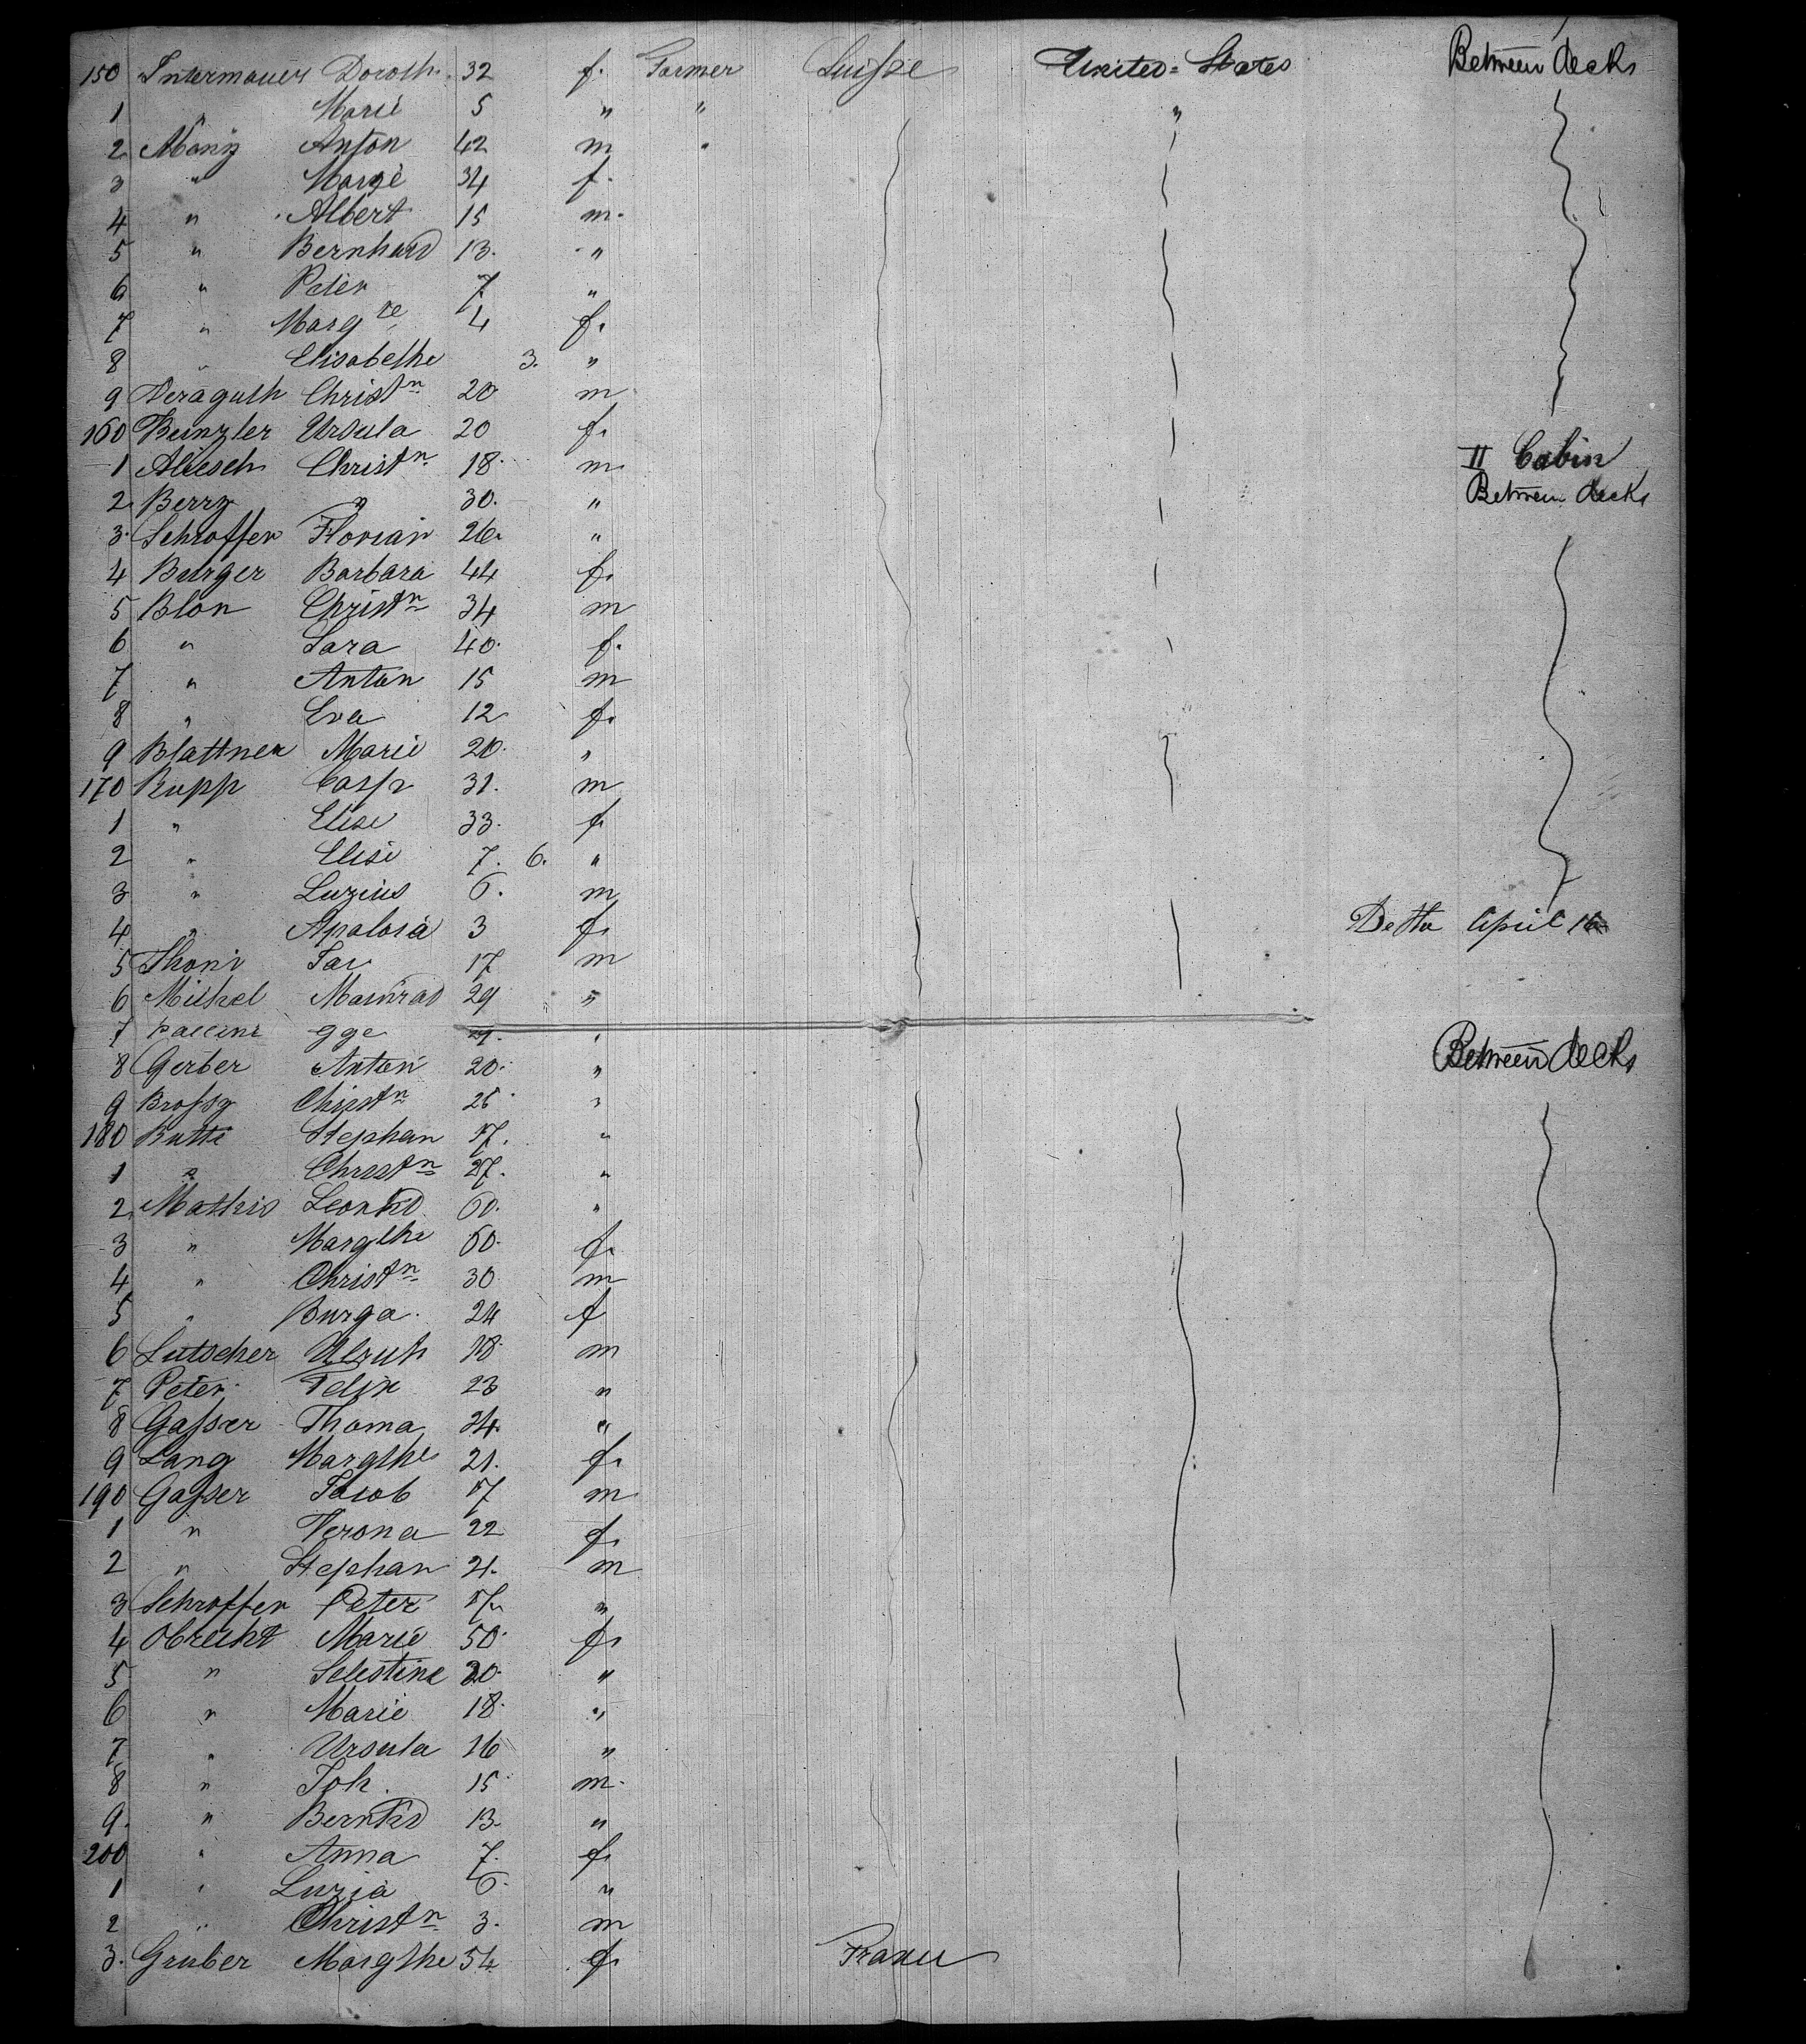 150 Intermauer Doroth. 32 f. Farmer Suisse United=States Between decks
1 " Marie 5 " " "
2 Maný Anton 42 m "
3 " Margé 34 f.
4 " Albert 15 m.
5 " Bernhard 13. "
6 " Peter 7 "
7 " Marg re 4 f.
8 " Elisabethe 3. "
9 Deraguth Christn 20 m
160 Beinzler Ursula 20 f.
1 Aliesch Christn 18. m II Cabin
2 Berry " 30. " Between decks
3. Schroffer Florian 26. "
4 Burger Barbara 44 f.
5 Blon Christn 34 m
6 " Sara 40. f.
7 " Anton 15 m
8 " Eva 12 f.
9 Blattner Marie 20. "
170 Rupp Casp 31. m
1 " Elise 33. f
2 " Elise 7. 6. "
3 " Luzius 6. m
4 " Apalosia 3 f. Detto April 16
5 Thoni Jac 17 m
6 Mithel Mainrad 29 "
7 gge "
8 Gerber Anton 20. " Between decks
9 Brossy Christn 25 "
180 Butti Stephan 17. "
1 " Christn 27. "
2 Mathis Leonhd 60. "
3 " Margthe 60. f.
4 " Christn 30 m
5 " Burga. 24 f
6 Lutscher Ulrich 18. m
7 Peter Felix 23 "
8 Gasser Thoma 24. "
9 Lang Margthe 21. f.
190 Gasser Jacob 17 m
1 " Verona 22 f.
2 " Stephan 21. m
3 Schroffer Peter 17. "
4 Obrecht Marie 50. f.
5 " Selestine 20. "
6 " Marie 18. "
7 " Ursula 16 "
8 " Joh. 15 m.
9. " Bernhd 13. "
200 " Anna 7. f.
1 " Luzia 6. "
2 " Christn 3. m
3. Gruber Margthe 54 f. France